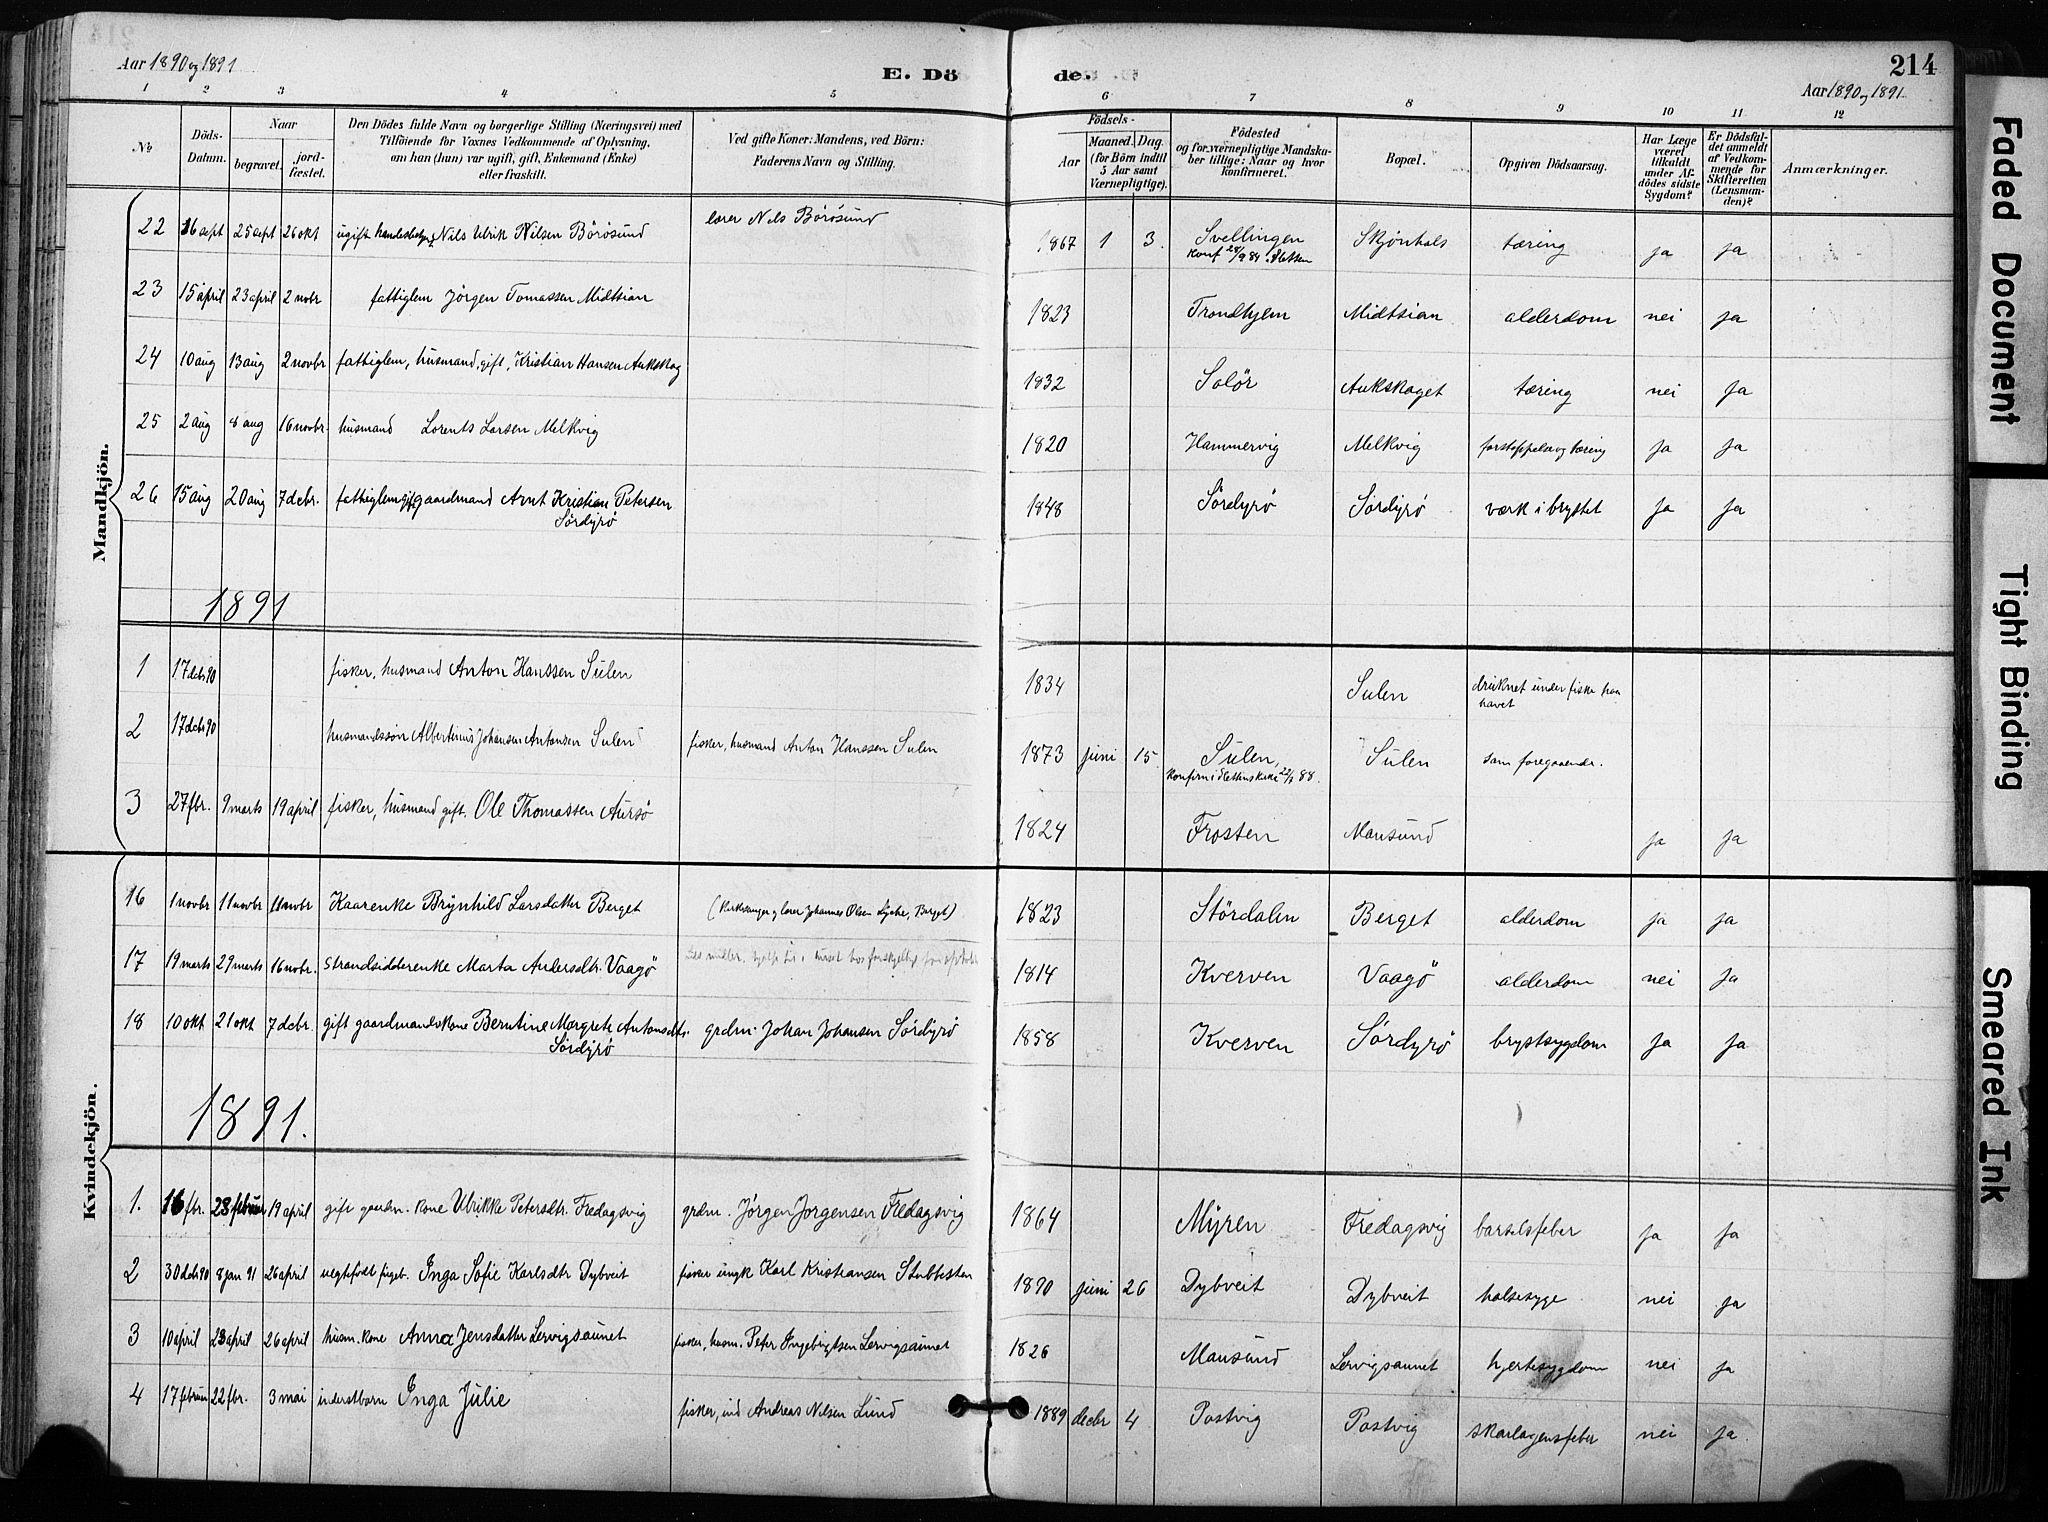 Aar 1890 og 1891
E. Döde.
214
Aar 1890 og 1891
1 2 3 4 5 6 7 8 9 10 11 12
No
Döds-Datum.
Naar
begravet.
jord-fæstet.
Den Dödes fulde Navn og borgerlige Stilling (Næringsvei) med
Tilföiende for Voxnes Vedkommende af Oplysning,
om han (hun) var ugift, gift, Enkemand (Enke)
eller fraskilt.
Ved gifte Koner: Mandens, ved Börn:
Faderens Navn og Stilling.
Födsels-
Aar
Maaned. Dag.
(for Börn indtil
5 Aar samt
Værnepligtige).
Födested
og for værnepligtige Mandska-
ber tillige: Naar og hvor
konfirmeret.
Bopæl.
Opgiven Dödsaarsag.
Har Læge
været
tilkaldt
under Af-
dödes sidste
Sygdom?
Er Dödsfal-
det anmeldt
af Vedkom-
mende for
Skifteretten
(Lensman-
den)?
Anmærkninger.
Mandkjön.
22 16 sept 25 sept 26 okt ugift Nils Ulrik Nilsen Börösund lærer Nils Börösund 1867 1 3. Svellingen Skjönhals tæring ja ja
konf 28/9 84
23 15 april 23 april 2 nobr fattiglem Jörgen Tomassen Midtsian 1823 Trondhjem Midtsian alderdom nei ja
24 10 aug 13 aug 2 novbr fattiglem, husmand, gift, Kristian Hansen Aukskag 1832 Solör Aukskaget tæring nei ja
25 2 aug 8 aug 16 novbr. husmand Lorents Larsen Melkvig 1820 Hammervig Melkvig forstoppelse og tæring ja ja
26 15 aug 20 aug 7 decbr. fattiglem gift gaardmand Arnt Kristian Petersen 1848 Sördyrö Sördyrö værk i brystet ja ja
Sördyrö
1891
1 17 decb 90 fisker, husmand Anton Hanssen Sulen 1834 Sulen druknet under fiske paa
havet
2 17 decb 90 husmandssön Albertinus Johansen Antonsen Sulen fisker, husmand Anton Hanssen Sulen 1873 juni 15 Sulen, Sulen som foregaaende.
3 27 fbr. 9 marts 19 april fisker, husmand gift. Ole Thomassen Aursö 1824 Frosten Mausund ja ja
Kvindekjön.
16 1 novbr 11 novbr 11 novbr Kaarenke Brynhild Larsdatter Berget (Kirkesanger og lærer Johannes Olsen Berget) 1823 Stördalen Berget alderdom ja ja
17 19 marts 29 marts 16 nobr. strandsidderenke Marta Andersdtr. Vaagö 1814 Kverven Vaagö alderdom nei ja
18 10 okt 21 okt 7 decbr. gift gaardmandskone Berntine Margrete Antonsdtr. grdm. Johan Johansen Sördyrö 1858 Kverven Sördyrö brystsygdom ja ja
Sördyrö
1891.
1. 16 fbr. 28 februar 19 april gift gaardm. kone Ulrikke Petersdtr. Fredagsvig grdm. Jörgen Jorgensen Fredagsvig 1864 Myren Fredagsvig barselsfeber ja ja
2 30 decb 90 8 jan 91 26 april uegtefödt pigeb. Inga Sofie Karlsdtr Dybveit fisker ungk Karl Kristiansen Stubbestan 1890 juni 26 Dybveit Dybveit halssyge nei ja
3 10 april 23 april 26 april husm. kone Anna Jensdatter Lervigsaunet fisker, husm. Peter Ingebrigtsen Lervigsaunet 1826 Mausund Lervigsaunet hjertesygdom nei ja
4 17 februar 22 fbr. 3 mai inderstbarn Inga Julie fisker, ind Andreas Nilsen Lund 1889 decbr 4 Postvig Postvig skarlagensfeber nei ja.
Faded Document
Tight Binding
Smeared Ink